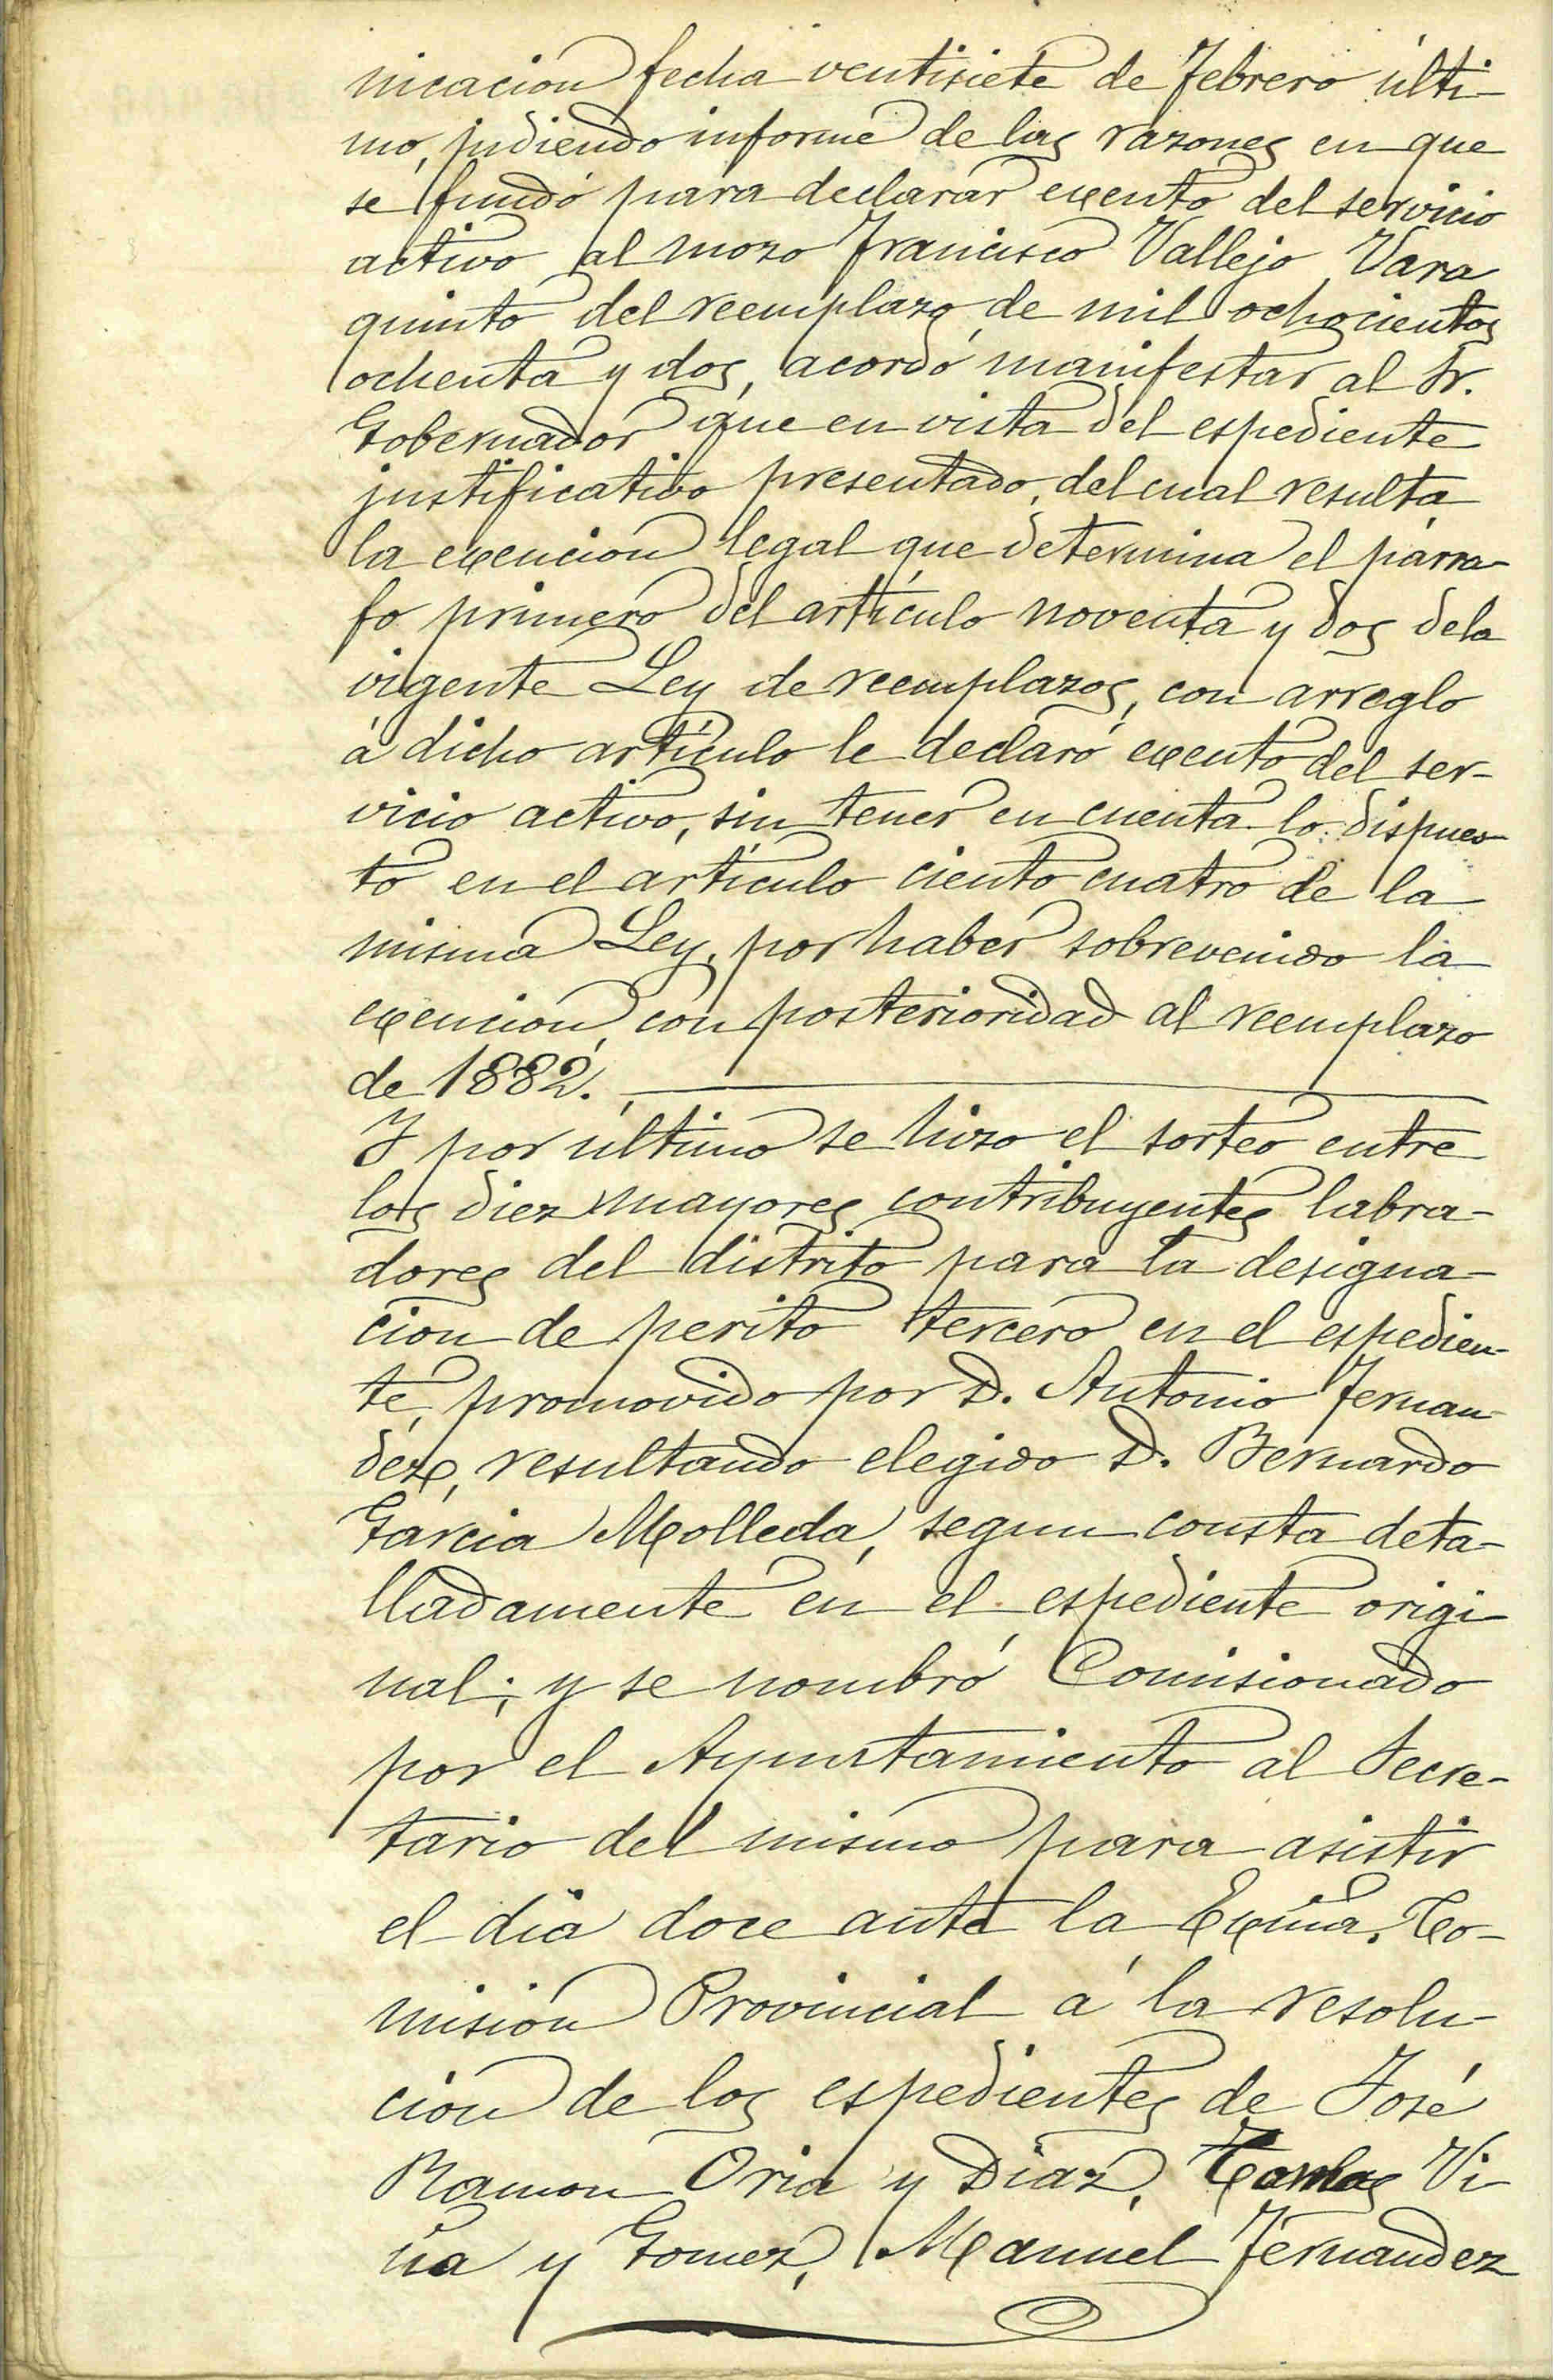 nicación fecha ventisiete de Febrero últi-
mo, pidiendo informe de las razones en que
se fundó para declarar exento del servicio
activo al mozo Francisco Vallejo Vara
quinto del reemplazo de mil ochocientos
ochenta y dos, acordó manifestar al Sr.
Gobernador que en vista del espediente
justificativo presentado, del cual resulta
la exención legal que determina el párra-
fo primero del artículo noventa y dos dela
vigente Ley de reemplazos, con arreglo
á dicho artículo le declaró exento del ser-
vicio activo, sin tener en cuenta lo dispues-
to en el artículo ciento cuatro de la
misma Ley, por haber sobrevenido la
exención, con posterioridad al reemplazo
de 1882.
Y por último se hizo el sorteo entre
los diez mayores contribuyentes labra-
dores del distrito para la designa-
cion de perito tercero en el espedien-
te, promovido por D. Antonio Fernan-
dez, resultando elegido D. Bernardo
Garcia Molleda, segun consta deta-
lladamente en el espediente origi-
nal; y se nombró Comisionado
por el Ayuntamiento al Secre-
tario del mismo para asistir
el dia doce ante la Exma. Co-
misión Provincial á la resolu-
ción de los espedientes de José
Ramon Oria y Diaz, Carlos Vi-
ña y Gomez, Manuel Fernandez